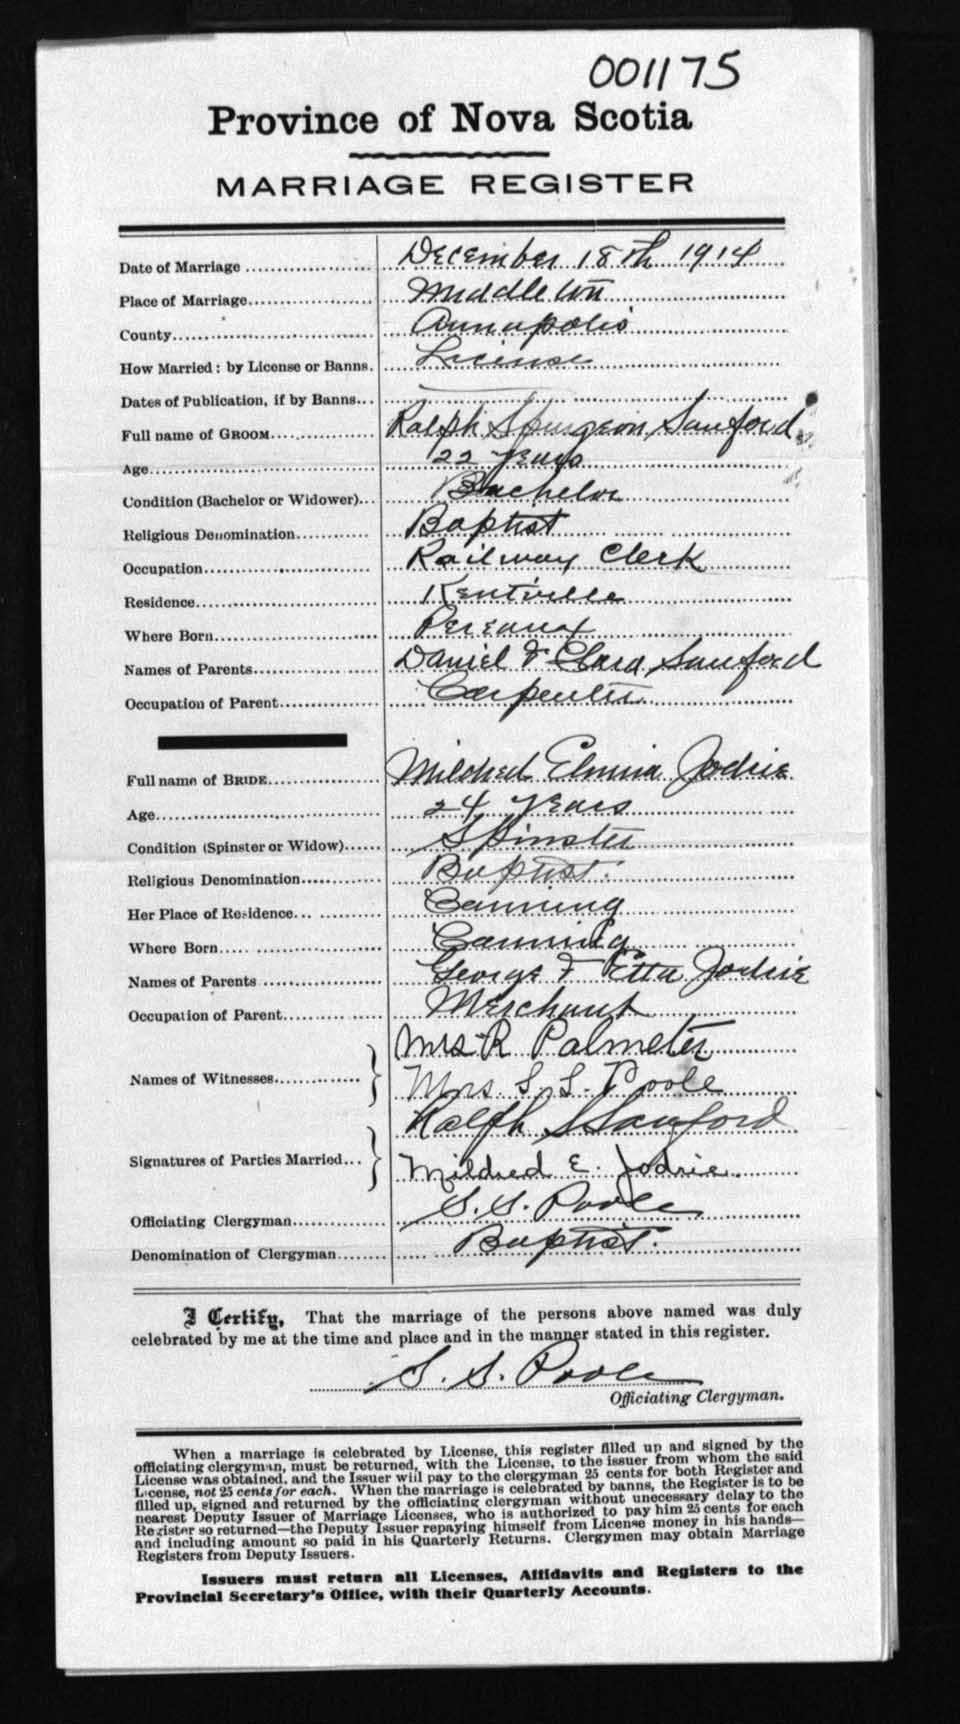 001175
Province of Nova Scotia
MARRIAGE REGISTER
Date of Marriage December 18th 1914
Place of Marriage Middleton
County Annapolis
How Married: by License or Banns. License
Dates of Publication, if by Banns
Full name of GROOM Ralph Spurgeon Sanford
Age 22 years
Condition (Bachelor or Widower) Bachelor
Religious Denomination Baptist
Occupation Railway Clerk
Residence Kentville
Where Born Pereaux
Names of Parents Daniel & Clara Sanford
Occupation of Parent Carpenter
Full name of BRIDE Mildred Elmira Jodrie
Age 24 years
Condition (Spinster or Widow) Spinster
Religious Denomination Baptist.
Her Place of Residence Canning
Where Born Canning
Names of Parents George & Etta Jodrie
Occupation of Parent Merchant
Mrs R Palmeter
Names of Witnesses Mrs. S. S. Poole
Ralph S Sanford
Signatures of Parties Married Mildred E. Jodrie.
Officiating Clergyman S. S. Poole
Denomination of Clergyman Baptist.
I Certify, That the marriage of the persons above named was duly
celebrated by me at the time and place and in the manner stated in this register.
S. S. Poole
Officiating Clergyman.
When a marriage is celebrated by License, this register filled up and signed by the
officiating clergyman, must be returned, with the License, to the issuer from whom the said
License was obtained, and the Issuer will pay to the clergyman 25 cents for both Register and
License, not 25 cents for each. When the marriage is celebrated by banns, the Register is to be
filled up, signed and returned by the officiating clergyman without unecessary delay to the
nearest Deputy Issuer of Marriage Licenses, who is authorized to pay him 25 cents for each
Register so returned—the Deputy Issuer repaying himself from License money in his hands—
and including amount so paid in his Quarterly Returns. Clergymen may obtain Marriage
Registers from Deputy Issuers.
Issuers must return all Licenses, Affidavits and Registers to the
Provincial Secretary's Office, with their Quarterly Accounts.